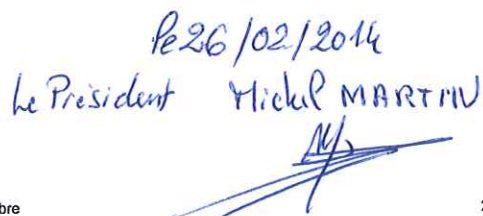 le 26/02/2014
Le Président Michel MARTIN
bre